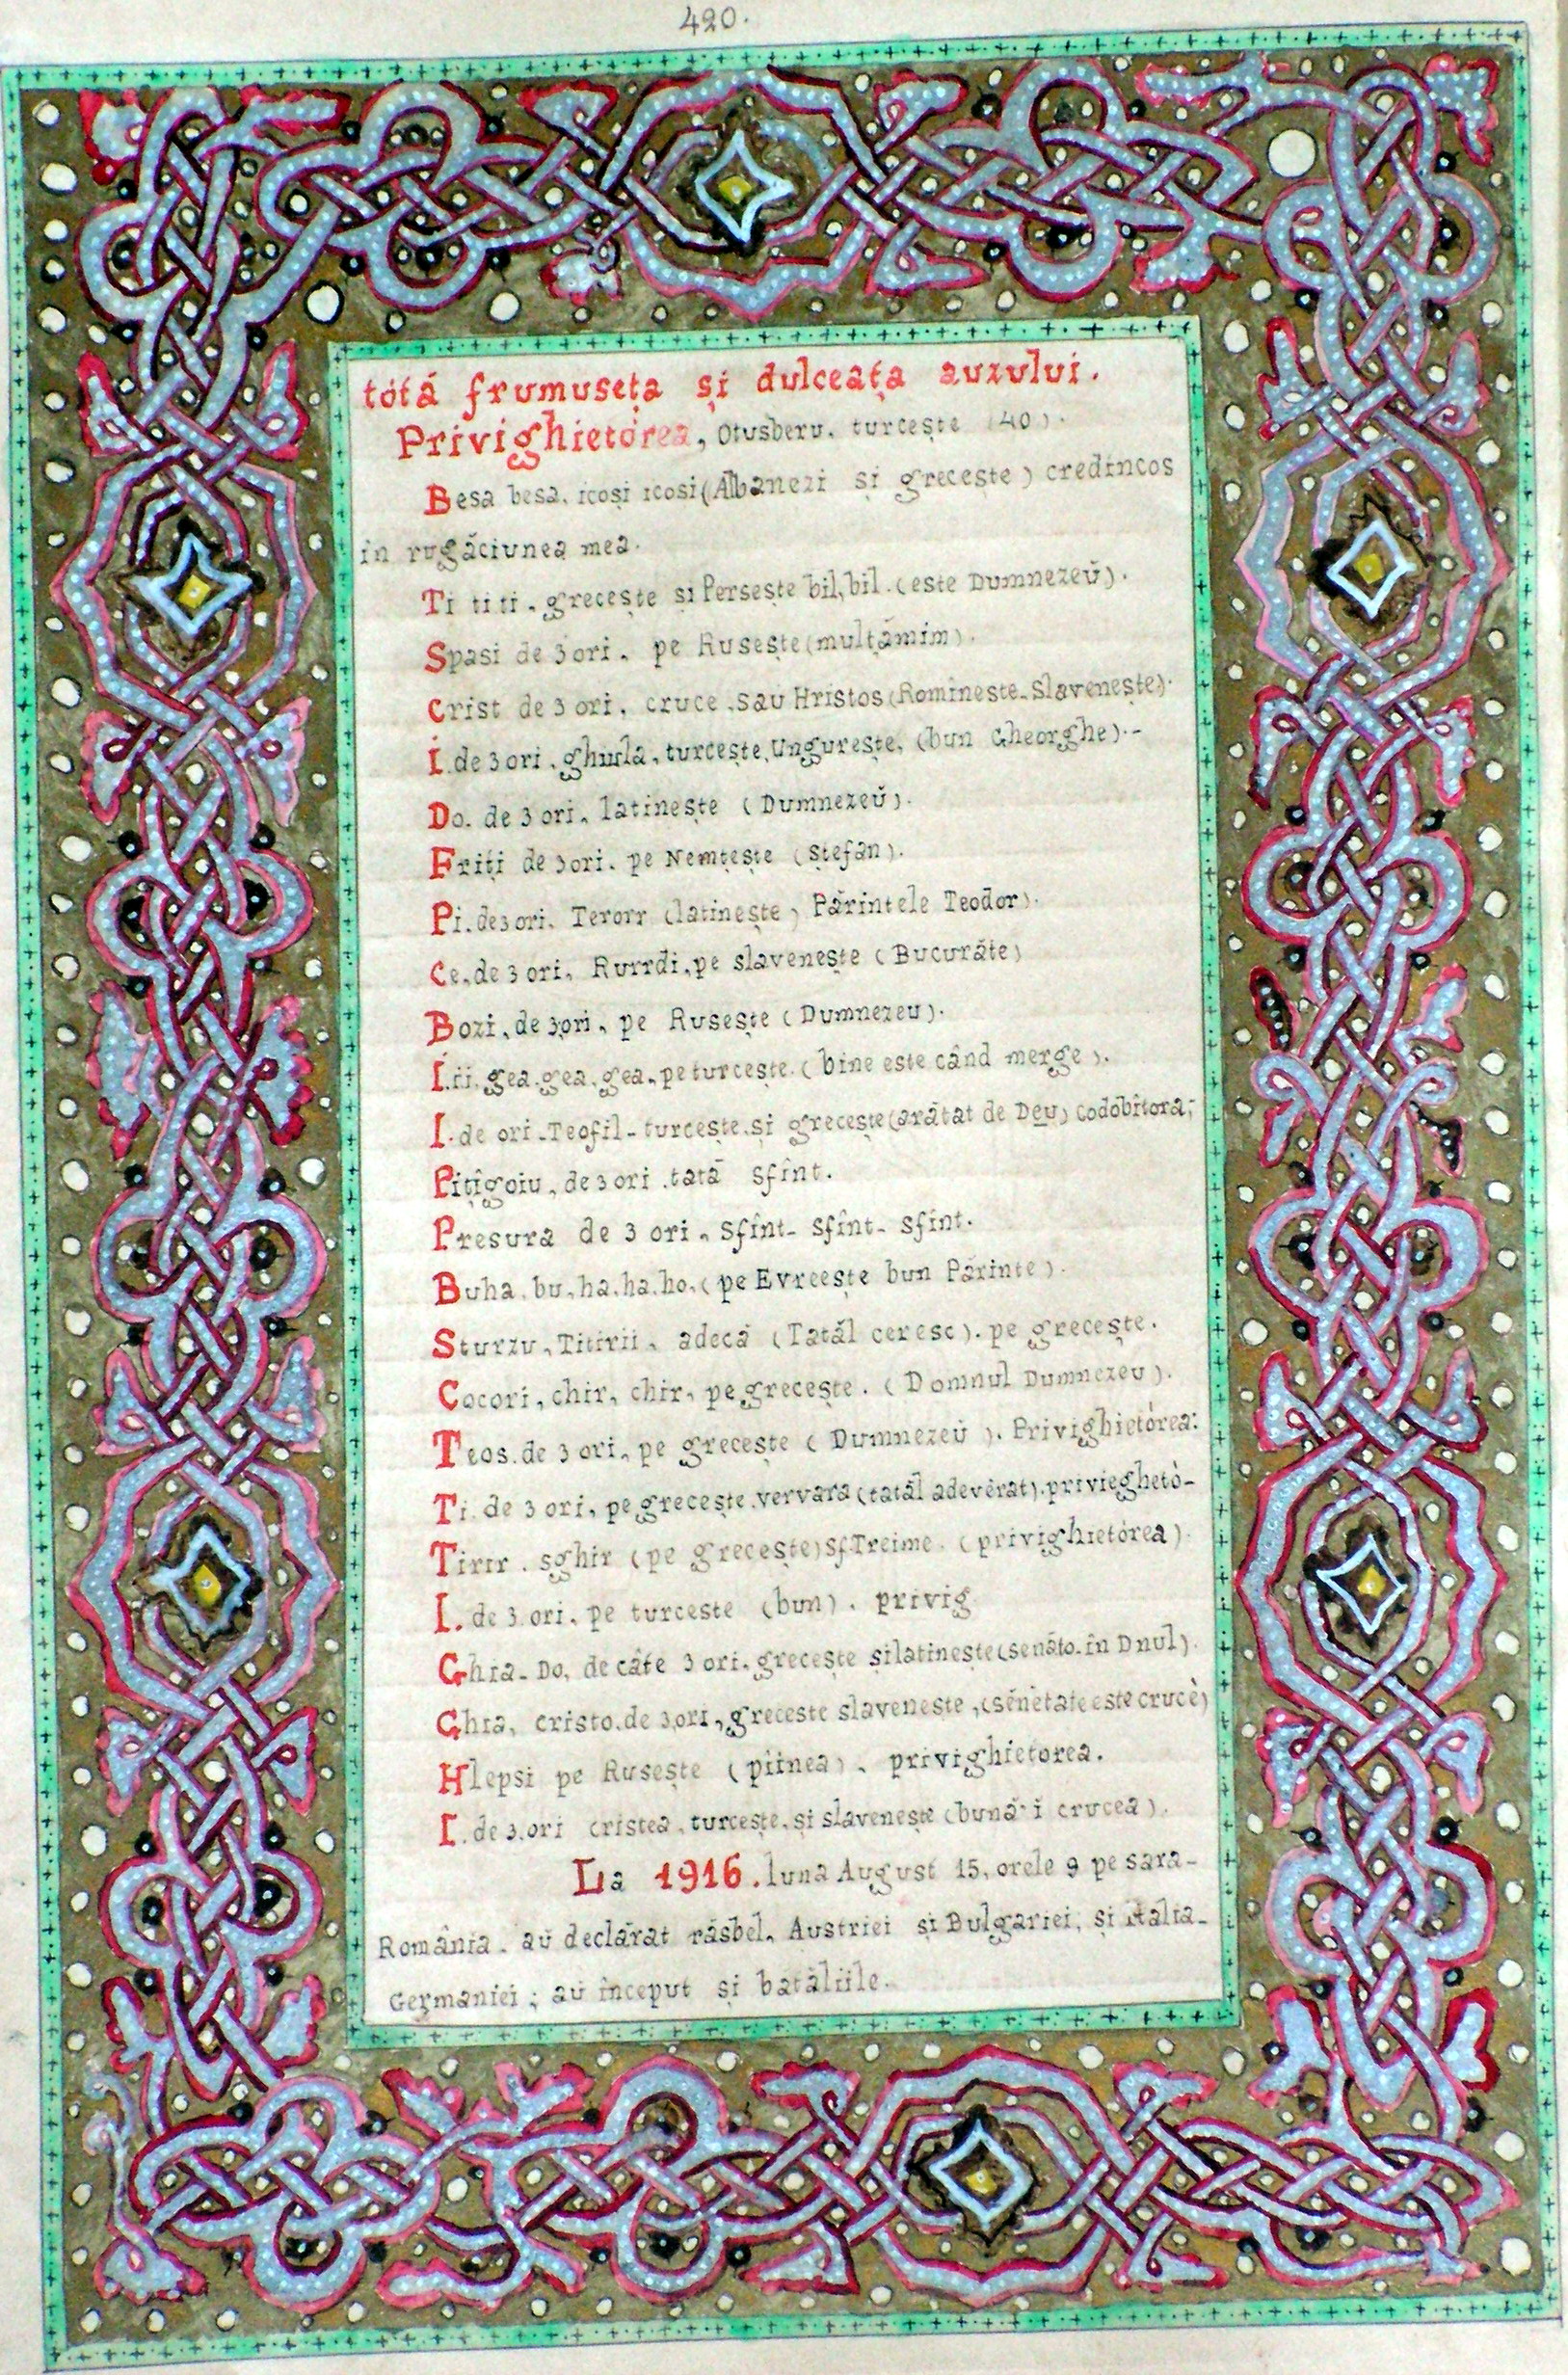 420.
tótă frumusețа și dulceața auzului.
Privighietórea, Otusberu. turcește (40).
Besa besa. icoși icosi (Albanezi și grecește) credincos
în rugăciunea mea.
Ti ti ti. grecește și Persește bil, bil. (este Dumnezeŭ).
Spasi de 3 ori. pe Rusește (mulțămim).
Crist de 3 ori. cruce. sau Hristos (Romineste-Slavenește).
I. de 3 ori. turcește, Ungurește, (bun Gheorghe).-
Do. de 3 ori. latinește (Dumnezeŭ).
Friți de 3 ori. pe Nemțește (Ștefan).
Pi. de 3 ori. Terorr (latinește, Părintele Teodor).
Ce. de 3 ori. Rurrdi. pe slavenește (Bucurăte)
Bozi. de 3 ori. pe Rusește (Dumnezeu).
I.ii. gea. gea. gea. pe turcește. (bine este când merge).
I. de ori - Teofil - turcește. și grecește (arătat de Deu) Codobitora;
Pițigoiu, de 3 ori. tată sfînt.
Presura de 3 ori. Sfînt- sfînt- sfînt.
Buha. bu, ha. ha. ho. (pe Evreește bun Părinte).
Sturzu, Titirii. adecă (Tatăl ceresc). pe grecește.
Cocori, chir, chir, pe grecește. (Domnul Dumnezeu).
Teos. de 3 ori. pe grecește (Dumnezeŭ). Privighietórea:
Ti. de 3 ori. pe grecește. vervara (tatăl adevèrat). privieghetò-
Tirir. sghir (pe grecește) sf Treime. (privighietórea).
I. de 3. ori. pe turceste (bun). privig
Ghia- Do. de câte 3 ori. grecește si latinește (senăto. în Dnul).
Ghia, cristo. de 3 ori, greceste slaveneste, (sénètate este crucè)
Hlepsi pe Rusește (piinea). privighietorea.
I. de 3. ori cristea. turcește. și slavenește (bună i crucea).
La 1916. luna August 15, orele 9 pe sara-
România. aŭ declărat răsbel. Austriei și Bulgariei, și Italia-
Germaniei; aŭ început și bataliile.